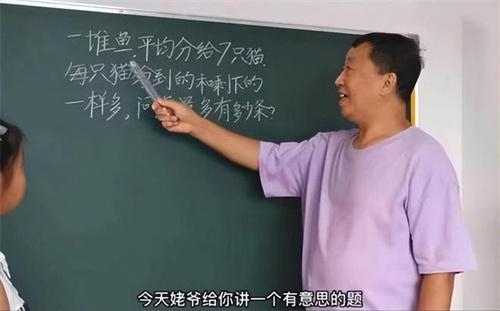 一堆鱼,平均分给7只猫.
每只猫分到的和剩下的
一样多,问鱼最多有多少条?
今天姥爷给你讲一个有意思的题